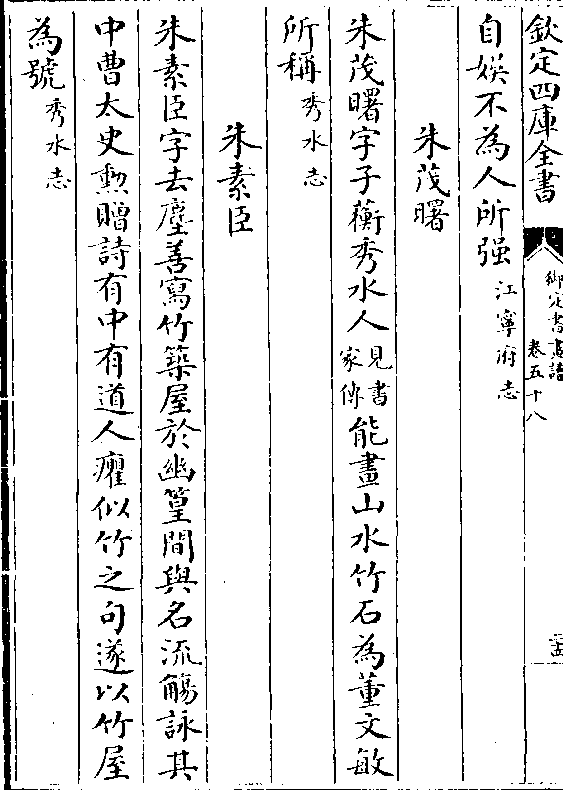 欽定四庫全書
御定書畫譜
卷五十八
二五
自娱不為人所强江寧府志
朱茂曙
朱茂曙字子蘅秀水人見書家傳能畫山水竹石為董文敏
所稱秀水志
朱素臣
朱素臣字去塵善寫竹築屋於幽篁間與名流觴詠其
中曹太史勲贈詩有中有道人癯似竹之句遂以竹屋
為號秀水志